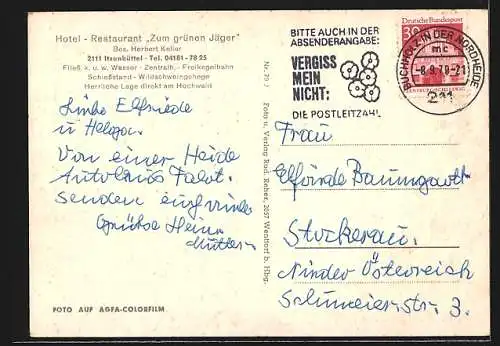 Hotel - Restaurant „Zum grünen Jäger"
Bes. Herbert Keller
2111 Itzenbüttel - Tel. 04181 - 78 25
Fließ. k. u. w. Wasser - Zentralh. - Freikegelbahn
Schießstand - Wildschweingehege
Herrliche Lage direkt am Hochwald
Liebe Elfriede
u Helga.
Von einer Heide
Autobus Fahrt.
senden
Grüße
Mutter
FOTO AUF AGFA-COLORFILM
Foto u. Verlag Rud. Reher, 2057 Wentorf b. Hbg.
BITTE AUCH IN DER
ABSENDERANGABE:
VERGISS
MEIN
NICHT:
DIE POSTLEITZAHL
BUCHHOLZ IN DER NORDHEIDE
mc
-8.9.70-21
211
Deutsche Bundespost
30
Frau
Elfriede Baumgartt
Stockerau.
Nieder Österreich
Str. 3.